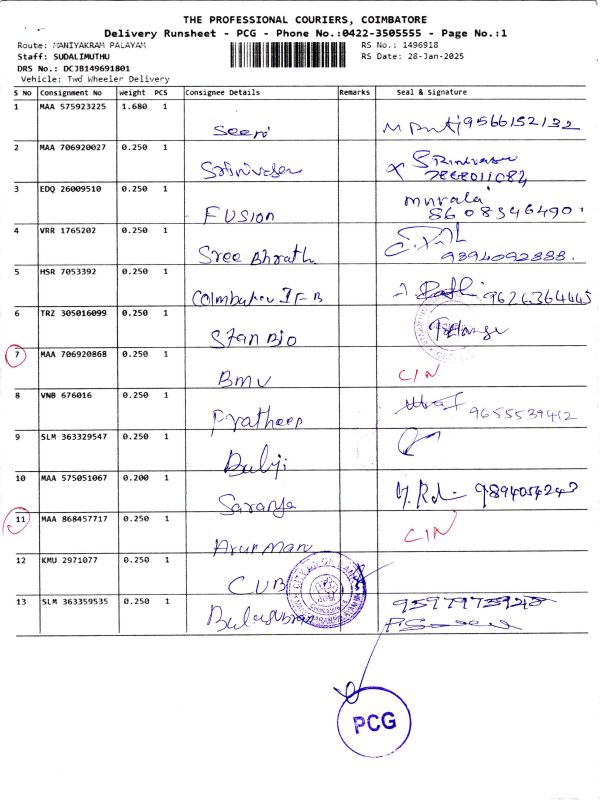 THE PROFESSIONAL COURIERS, COIMBATORE
Delivery Runsheet - PCG - Phone No.:0422-3505555 - Page No.:1
Route: MANIYAKRAM PALAYAM RS No.: 1496918
Staff: SUDALIMUTHU RS Date: 28-Jan-2025
DRS No.: DCJB149691801
Vehicle: Two Wheeler Delivery
S No Consignment No Weight PCS Consignee Details Remarks Seal & Signature
1 MAA 575923225 1.680 1
Seeni 9566152132
2 MAA 706920027 0.250 1
Srinivasan Srinivasan
3 EDQ 26009510 0.250 1
FUSION murala
8608346490.
4 VRR 1765202 0.250 1
Sree Bhrath 9894092888.
5 HSR 7053392 0.250 1
Coimbatore IFB 9626364445
6 TRZ 305016099 0.250 1
Stan Bio
7 MAA 706920868 0.250 1
BMV C/N
8 VNB 676016 0.250 1
Pratheep 9655539412
9 SLM 363329547 0.250 1
Bulji
10 MAA 575051067 0.200 1
Saranya 9894054243
11 MAA 868457717 0.250 1
Arun Mani C/N
12 KMU 2971077 0.250 1
CUB
13 SLM 363359535 0.250 1
Balasubran
PCG